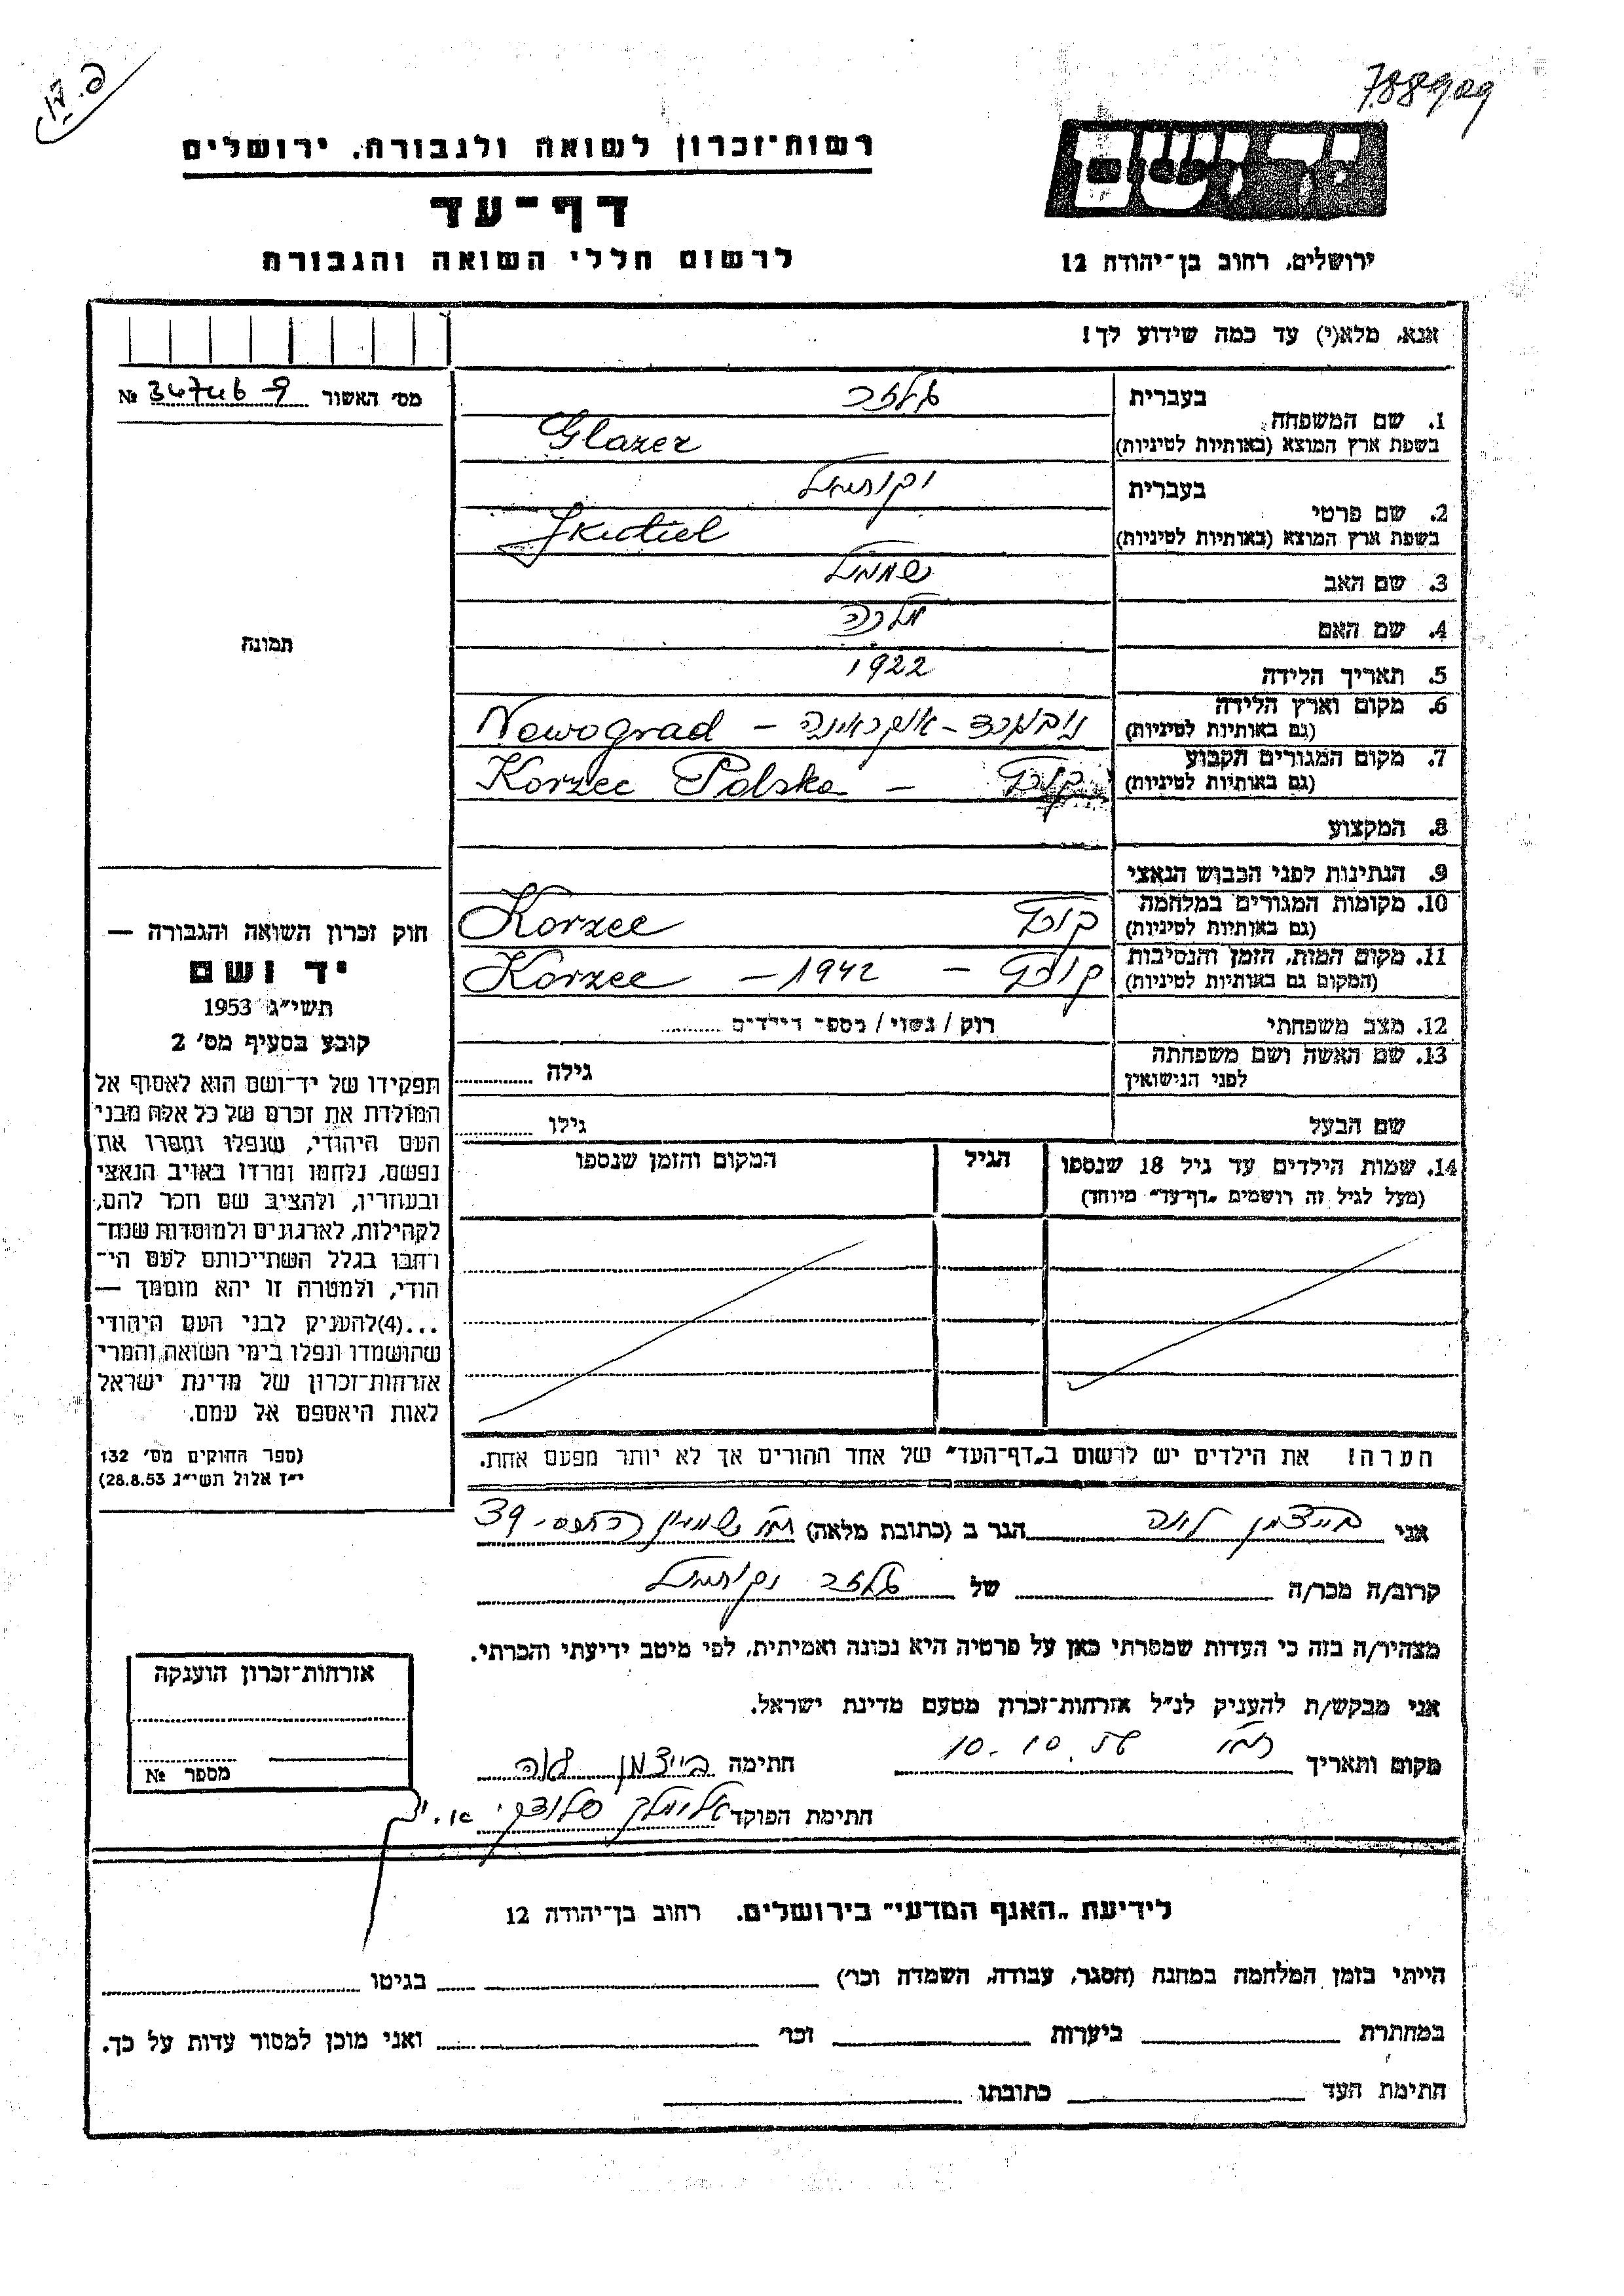 788909
פ.ק.
יד ושם
רשות־זכרון לשואה ולגבורה, ירושלים
דף־עד
לרשום חללי השואה והגבורה
ירושלים, רחוב בן־יהודה 12
אנא, מלא(י) עד כמה שידוע לך!
מס׳ האשור №
1. שם המשפחה
בעברית גלזר
בשפת ארץ המוצא (באותיות לטיניות) Glazer
2. שם פרטי
בעברית יקותיאל
בשפת ארץ המוצא (באותיות לטיניות) Jkutiel
3. שם האב שמואל
4. שם האם מלכה
5. תאריך הלידה 1922
6. מקום וארץ הלידה נובוגרד - אוקראינה - Nowograd
(גם באותיות לטיניות)
7. מקום המגורים הקבוע קורץ - Korzec Polska
(גם באותיות לטיניות)
8. המקצוע
9. הנתינות לפני הכבוש הנאצי
10. מקומות המגורים במלחמה קורץ Korzec
(גם באותיות לטיניות)
11. מקום המות, הזמן והנסיבות קורץ - 1942 - Korzec
(המקום גם באותיות לטיניות)
12. מצב משפחתי רוק / נשוי / מספר הילדים
13. שם האשה ושם משפחתה
לפני הנישואין גילה
שם הבעל גילו
14. שמות הילדים עד גיל 18 שנספו הגיל המקום והזמן שנספו
(מעל לגיל זה רושמים „דף־עד״ מיוחד)
הערה! את הילדים יש לרשום ב„דף־העד״ של אחד ההורים אך לא יותר מפעם אחת.
תמונה
חוק זכרון השואה והגבורה —
יד ושם
תשי״ג 1953
קובע בסעיף מס׳ 2
תפקידו של יד־ושם הוא לאסוף אל
המולדת את זכרם של כל אלה מבני
העם היהודי, שנפלו ומסרו את
נפשם, נלחמו ומרדו באויב הנאצי
ובעוזריו, ולהציב שם וזכר להם,
לקהילות, לארגונים ולמוסדות שנח־
רחבו בגלל השתייכותם לעם הי־
הודי, ולמטרה זו יהא מוסמך —
...(4)להעניק לבני העם היהודי
שהושמדו ונפלו בימי השואה והמרי
אזרחות־זכרון של מדינת ישראל
לאות היאספם אל עמם.
(ספר החוקים מס׳ 132
י״ז אלול תשי״ג 28.8.53)
אני בייצמן לאה הגר ב (כתובת מלאה) רח׳ שמעון 39
קרוב/ה מכר/ה של גלזר יקותיאל
מצהיר/ה בזה כי העדות שמסרתי כאן על פרטיה היא נכונה ואמיתית, לפי מיטב ידיעתי והכרתי.
אני מבקש/ת להעניק לנ״ל אזרחות־זכרון מטעם מדינת ישראל.
מקום ותאריך 10.10 חתימה בייצמן לאה
חתימת הפוקד אלימלך
אזרחות־זכרון הוענקה
מספר №
לידיעת „האגף המדעי״ בירושלים. רחוב בן־יהודה 12
הייתי בזמן המלחמה במחנה (הסגר, עבודה, השמדה וכו׳) בגיטו
במחתרת ביערות וכו׳ ואני מוכן למסור עדות על כך.
חתימת העד כתובתו